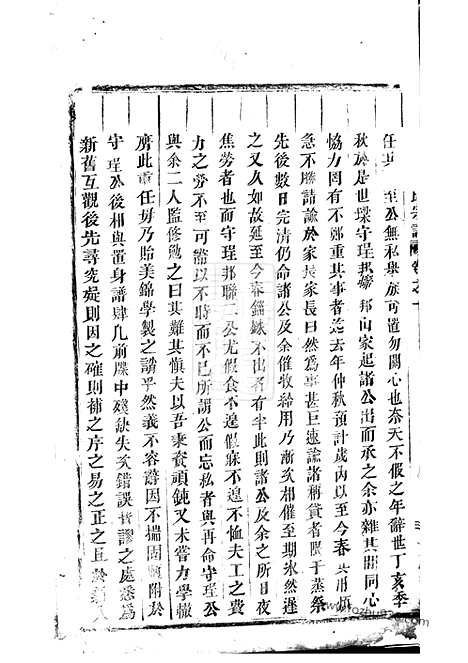 宗譜 卷之
任 至公無私舉族可置勿關心也奈天不假之年辭世丁亥季
秋 是世 梁守珵邦 邦 家起諸公出而承之余亦雜其間同心
協力罔有不鄭重其事者 去年仲秋預計歲內以至今春共用
急不勝請諭於家長家長曰然爲事甚巨速諭諸稱貸者限于蒸祭
先後數日完清仍命諸公及余催收給用乃漸次相催至期永然遲
之又久如故延至今春錙銖不出者有半此則諸公及余之所日夜
焦勞者也而守珵邦聯二公尤假食不遑假寐不遑不恤夫工之費
力之勞不至可諮以不時而不已所謂公而忘私者與再命守珵公
與余二人監修勉之曰其難其愼夫以吾秉資頑鈍又未嘗力學輙
膺此重任毋乃貽美錦學製之誚乎然義不容辭因不揣固陋附於
守珵公後相與置身譜肆几前牒中殘缺失次錯誤 謬之處悉爲
新舊互觀後先尋究疑則因之確則補之序之易之正之且於 八